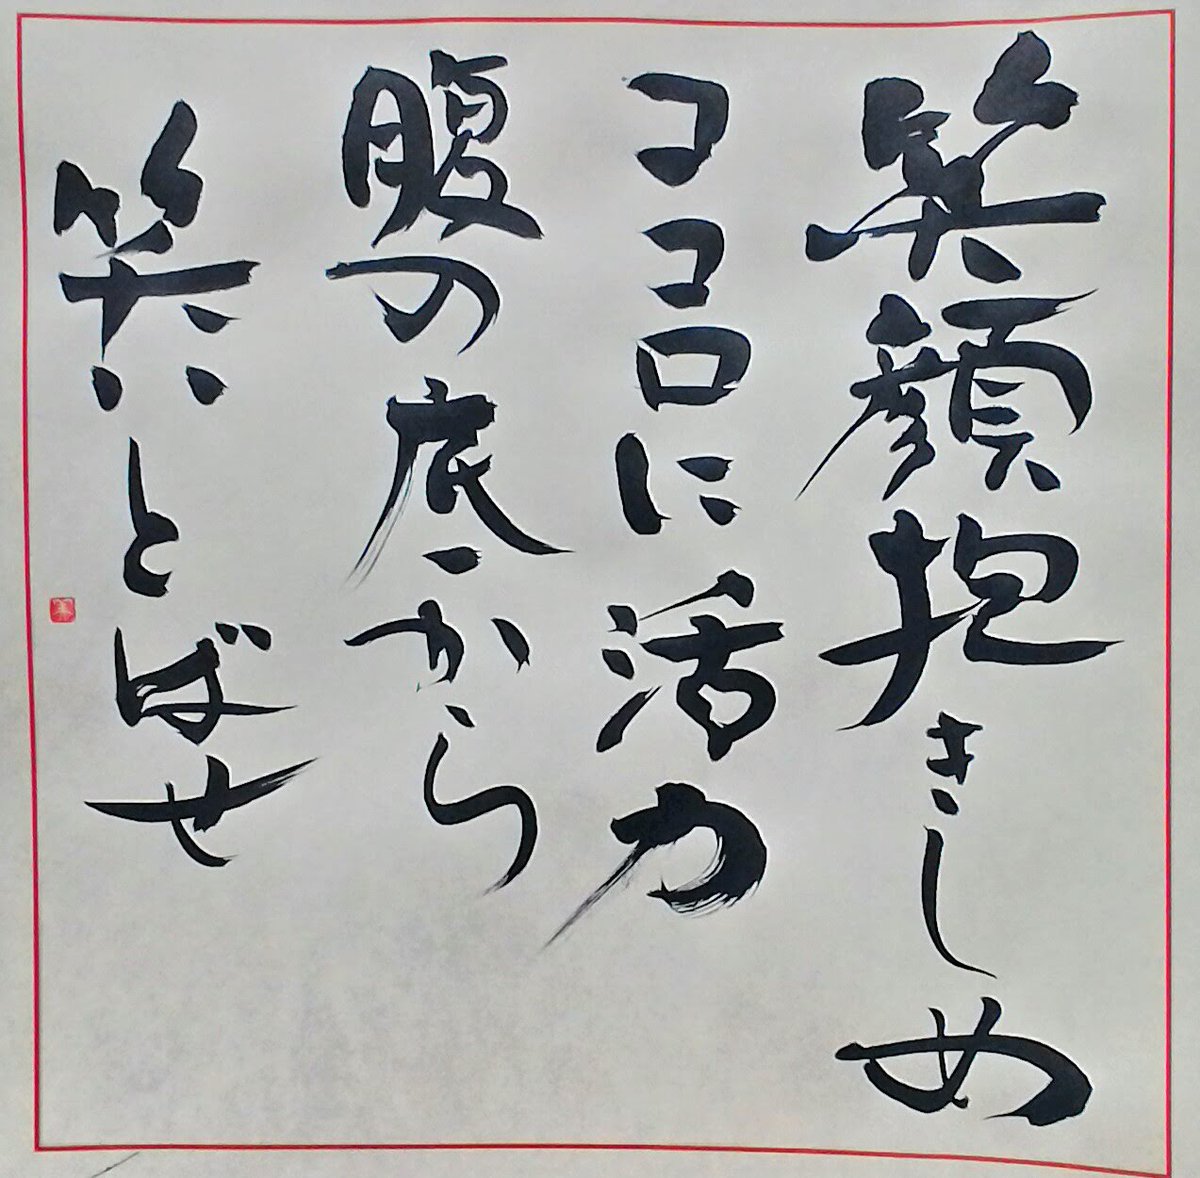 笑顔抱きしめ
ココロに活力
腹の底から
笑いとばせ